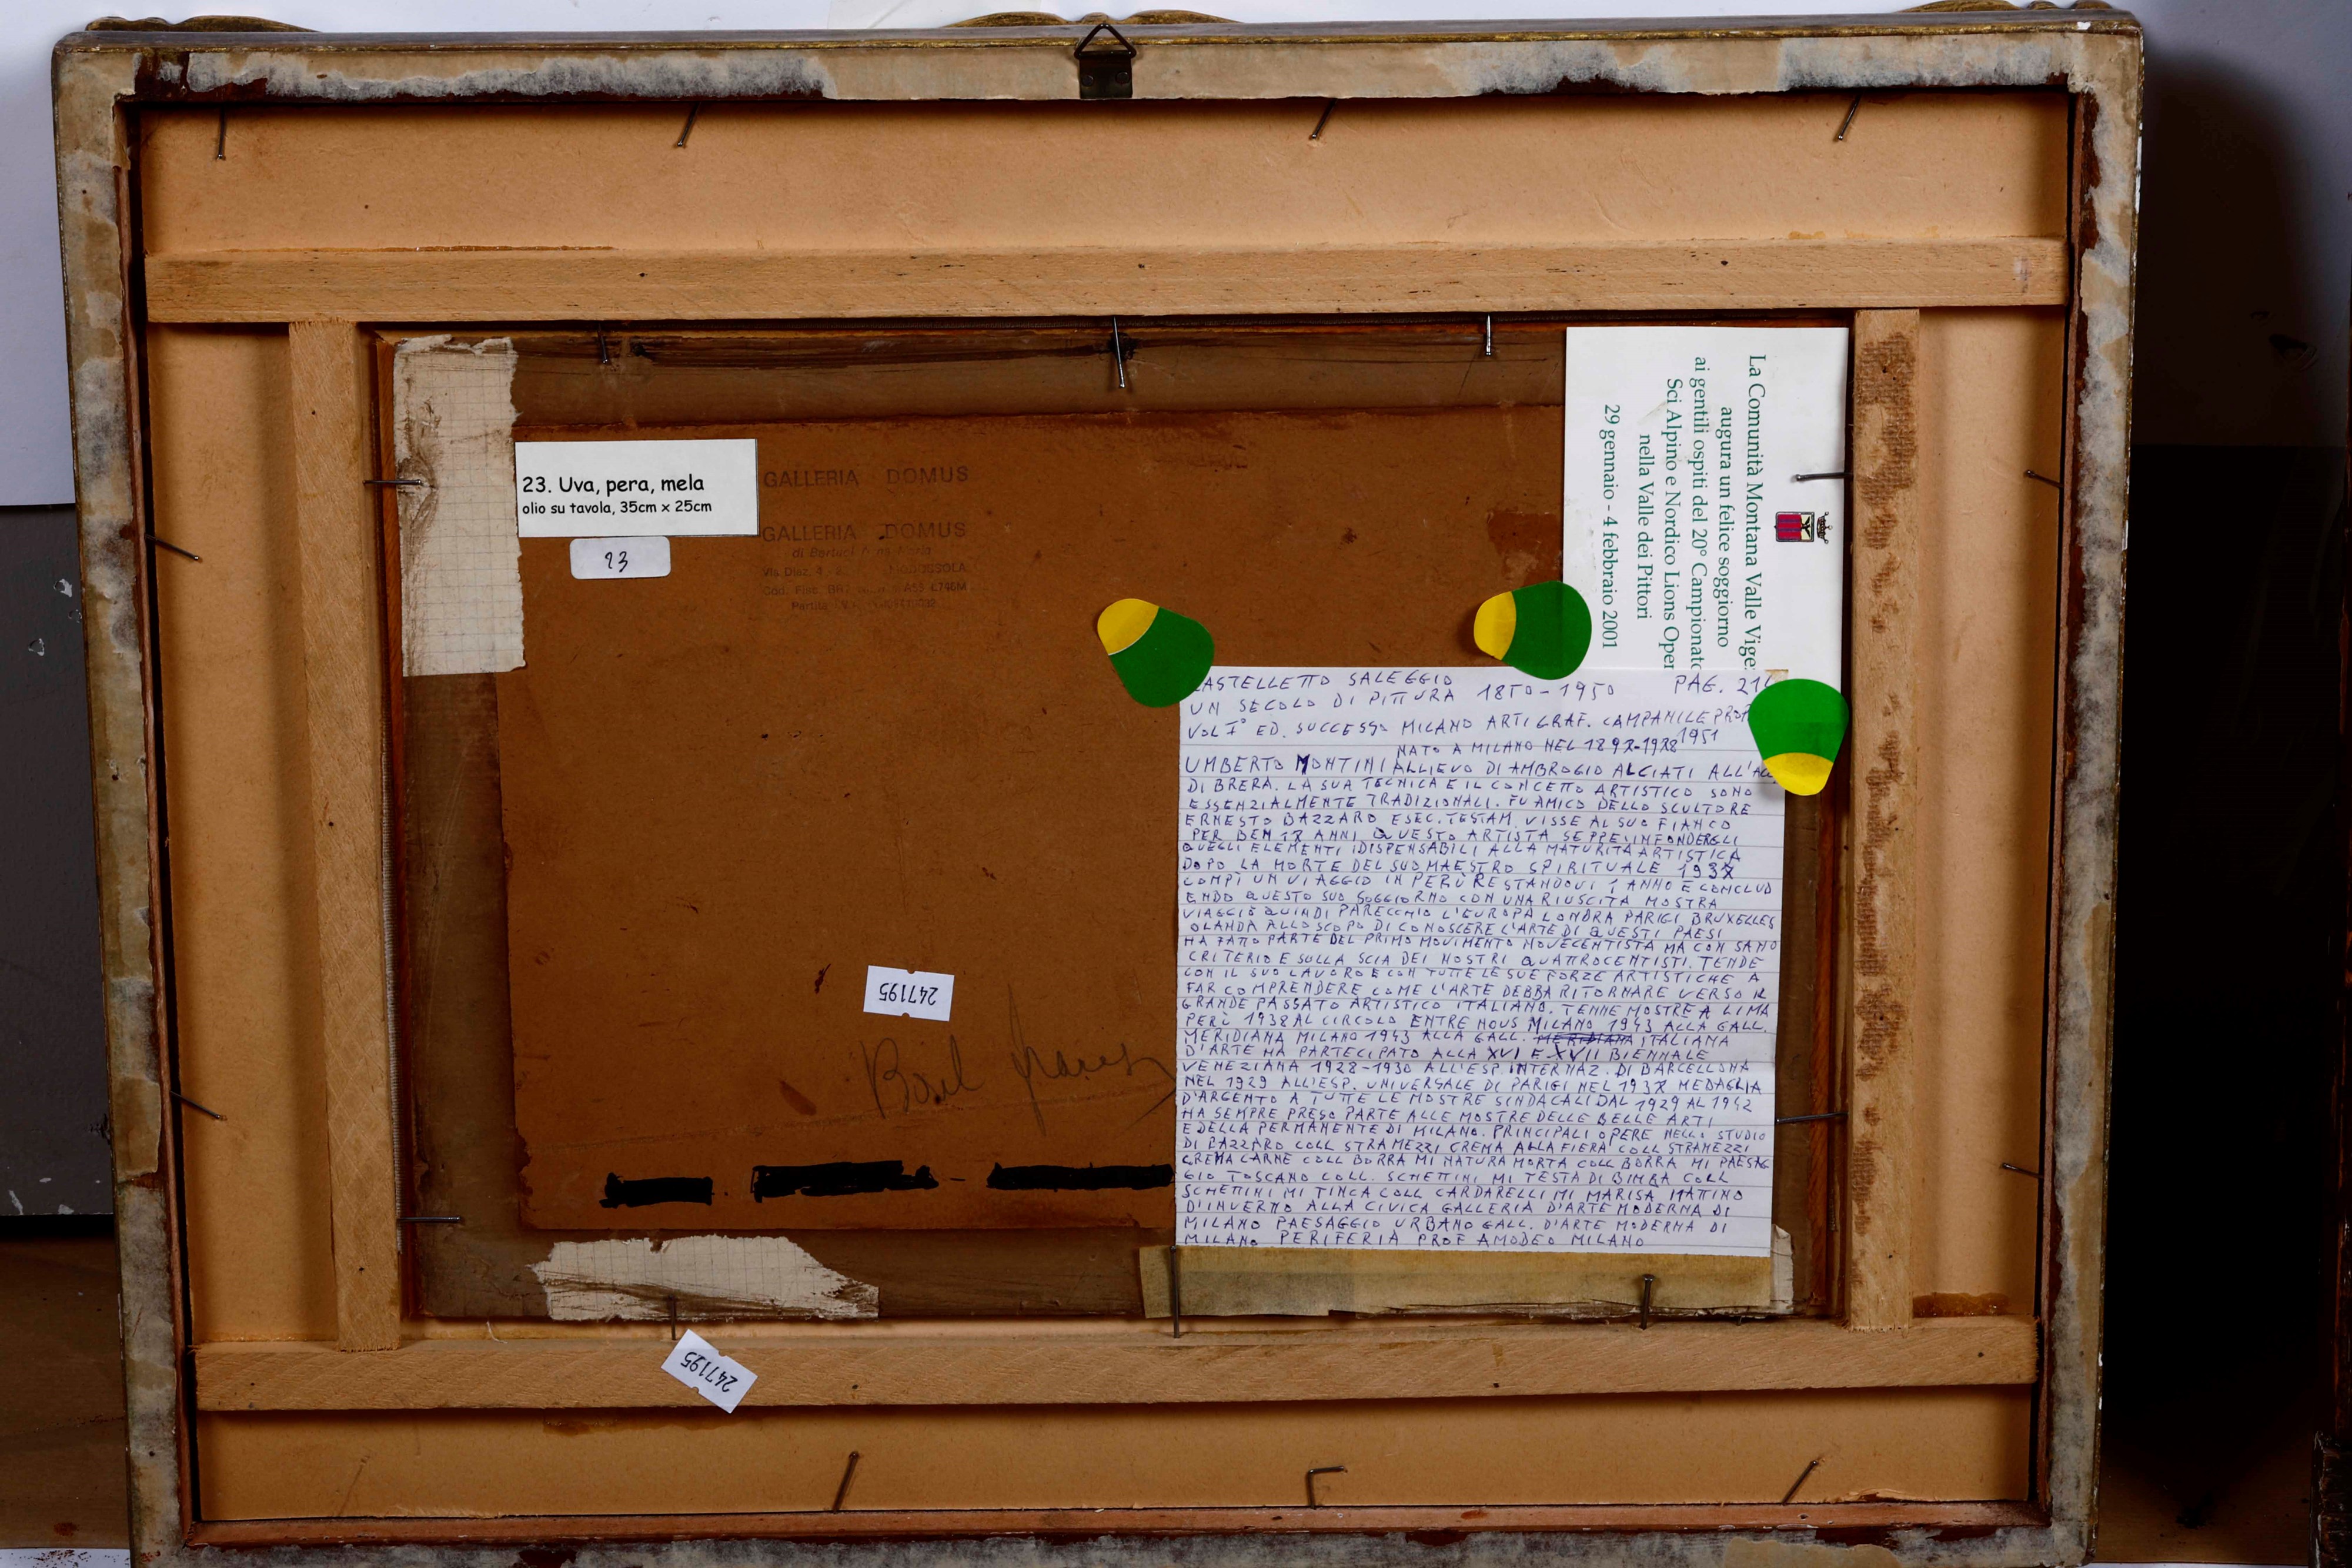 23. Uva, pera, mela
olio su tavola, 35cm x 25cm
23
GALLERIA DOMUS
GALLERIA DOMUS
di
Via Diaz, 4
Partita
La Comunità Montana Valle
augura un felice soggiorno
ai gentili ospiti del 20° Campionato
Sci Alpino e Nordico Lions Open
nella Valle dei Pittori
29 gennaio - 4 febbraio 2001
CASTELLETTO SALEGGIO PAG.
UN SECOLO DI PITTURA 1850-1950
VOL I° ED. SUCCESSO MILANO ARTI GRAF. CAMPANILE
NATO A MILANO NEL 1897-1978 1951
UMBERTO MONTINI ALLIEVO DI AMBROGIO ALCIATI
DI BRERA. LA SUA TECNICA E IL CONCETTO ARTISTICO SONO
ESSENZIALMENTE TRADIZIONALI. FU AMICO DELLO SCULTORE
ERNESTO BAZZARO ESEC. TESTAM. VISSE AL SUO FIANCO
PER BEN 17 ANNI QUESTO ARTISTA SEPPE INFONDERGLI
QUEGLI ELEMENTI IDISPENSABILI ALLA MATURITÀ ARTISTICA
DOPO LA MORTE DEL SUO MAESTRO SPIRITUALE 1937
COMPÌ UN VIAGGIO IN PERÙ RESTANDOVI 1 ANNO E CONCLUD
ENDO QUESTO SUO SOGGIORNO CON UNA RIUSCITA MOSTRA
VIAGGIÒ QUINDI PARECCHIO L'EUROPA LONDRA PARIGI BRUXELLES
OLANDA ALLO SCOPO DI CONOSCERE L'ARTE DI QUESTI PAESI
HA FATTO PARTE DEL PRIMO MOVIMENTO NOVECENTISTA MA CON SANO
CRITERIO E SULLA SCIA DEI NOSTRI QUATTROCENTISTI. TENDE
CON IL SUO LAVORO E CON TUTTE LE SUE FORZE ARTISTICHE A
FAR COMPRENDERE COME L'ARTE DEBBA RITORNARE VERSO IL
GRANDE PASSATO ARTISTICO ITALIANO. TENNE MOSTRE A LIMA
PERÙ 1938 AL CIRCOLO ENTRE NOUS MILANO 1943 ALLA GALL.
MERIDIANA MILANO 1943 ALLA GALL. MERIDIANA ITALIANA
D'ARTE HA PARTECIPATO ALLA XVI E XVII BIENNALE
VENEZIANA 1928-1930 ALL'ESP. INTERNAZ. DI BARCELLONA
NEL 1929 ALL'ESP. UNIVERSALE DI PARIGI NEL 1937 MEDAGLIA
D'ARGENTO A TUTTE LE MOSTRE SINDACALI DAL 1929 AL 1942
HA SEMPRE PRESO PARTE ALLE MOSTRE DELLE BELLE ARTI
E DELLA PERMANENTE DI MILANO. PRINCIPALI OPERE NELLO STUDIO
DI BAZZARO COLL STRAMEZZI CREMA ALLA FIERA COLL STRAMEZZI
CREMA CARNE COLL BORRA MI NATURA MORTA COLL BORRA MI PAESAG
GIO TOSCANO COLL. SCHETTINI MI TESTA DI BIMBA COLL
SCHETTINI MI TINCA COLL CARDARELLI MI MARISA MATTINO
D'INVERNO ALLA CIVICA GALLERIA D'ARTE MODERNA DI
MILANO PAESAGGIO URBANO GALL. D'ARTE MODERNA DI
MILANO PERIFERIA PROF AMODEO MILANO
247195
247195